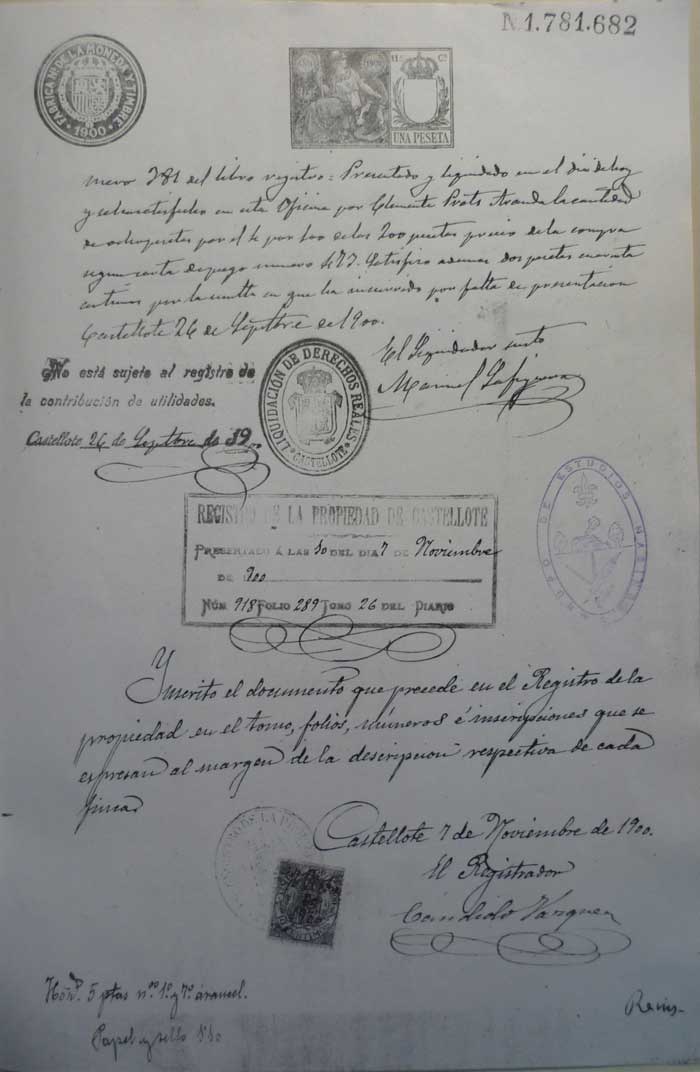 N.1.781.682
FABRICA Nl. DE LA MONEDA Y TIMBRE
1900
11ª Cª
UNA PESETA
mero 381 del libro registro = Presentado y liquidado en el dia de hoy
y satisfecho en esta Oficina por Clemente Prats Aranda la cantidad
de ocho pesetas por el 4 por 100 de las 200 pesetas precio de la compra
segun carta de pago numero 477. Satisfizo ademas dos pesetas cuarenta
centimos por la multa en que ha incurrido por falta de presentacion
Castellote 26 de Septbre de 1900.
El Liquidador
Manuel
No está sujeto al registro de
la contribución de utilidades.
Castellote 26 de Septbre de 1900
LIQUIDACIÓN DE DERECHOS REALES
CASTELLOTE
REGISTRO DE LA PROPIEDAD DE CASTELLOTE
PRESENTADO Á LAS 10 DEL DIA 7 DE Noviembre
DE 900
NÚM 918 FOLIO 289 TOMO 26 DEL DIARIO
GRUPO DE ESTUDIOS MASINOS
Inscrito el documento que precede en el Registro de la
propiedad en el tomo, folios, números é inscripciones que se
espresan al margen de la descripcion respectiva de cada
finca
Castellote 7 de Noviembre de 1900.
El Registrador
Cándido Vazquez
REGISTRO DE LA
1900
Hons. 5 ptas nos 1º y 7º arancel.
Papel y sello